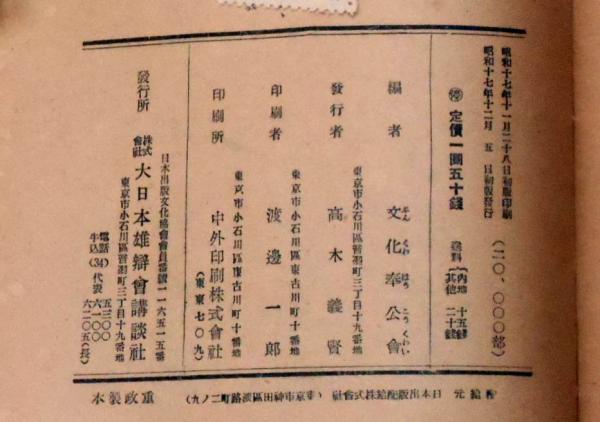 昭和十七年十一月二十八日初版印刷
昭和十七年十二月 五 日初版發行
(二〇、〇〇〇部)
定價一圓五十錢
送料
內地 十五錢
其他 二十錢
編者 文化奉公會
ぶん くわ ほう こう くわい
東京市小石川區音羽町三丁目十九番地
發行者 高木義賢
東京市小石川區東古川町十番地
印刷者 渡邊一郎
東京市小石川區東古川町十番地
印刷所 中外印刷株式會社
(東東七〇九)
日本出版文化協會會員番號一一六五一五番
發行所 株式會社 大日本雄辯會講談社
東京市小石川區音羽町三丁目十九番地
電話 牛込(34)代表
五三〇〇
六一〇〇
六二〇五(長)
配給元 日本出版配給株式會社 (東京市神田區淡路町二ノ九)
重政製本